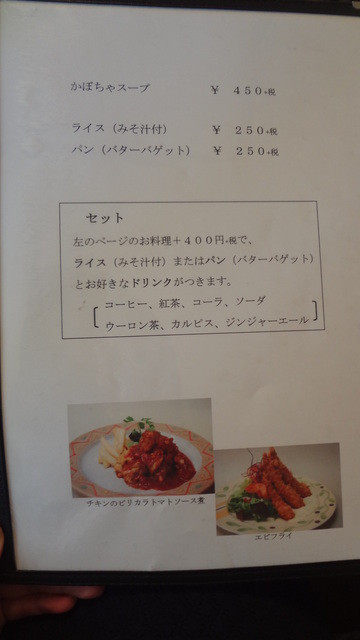 かぼちゃスープ ￥ ４５０+税
ライス（みそ汁付） ￥ ２５０+税
パン（バターバゲット） ￥ ２５０+税
セット
左のページのお料理＋４００円+税で、
ライス（みそ汁付）またはパン（バターバゲット）
とお好きなドリンクがつきます。
コーヒー、紅茶、コーラ、ソーダ
ウーロン茶、カルピス、ジンジャーエール
チキンのピリカラトマトソース煮
エビフライ